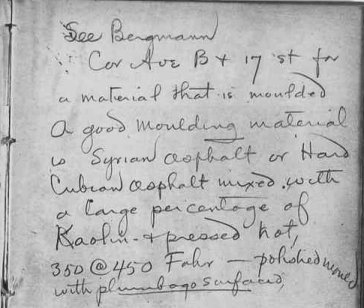 See Bergmann
Cor Ave B & 17 st for
a material that is moulded
A good moulding material
is Syrian asphalt or Hard
Cubian asphalt mixed with
a large percentage of
Kaolin & pressed hot,
350 @ 450 Fahr — polished
with plumbago surfaced,